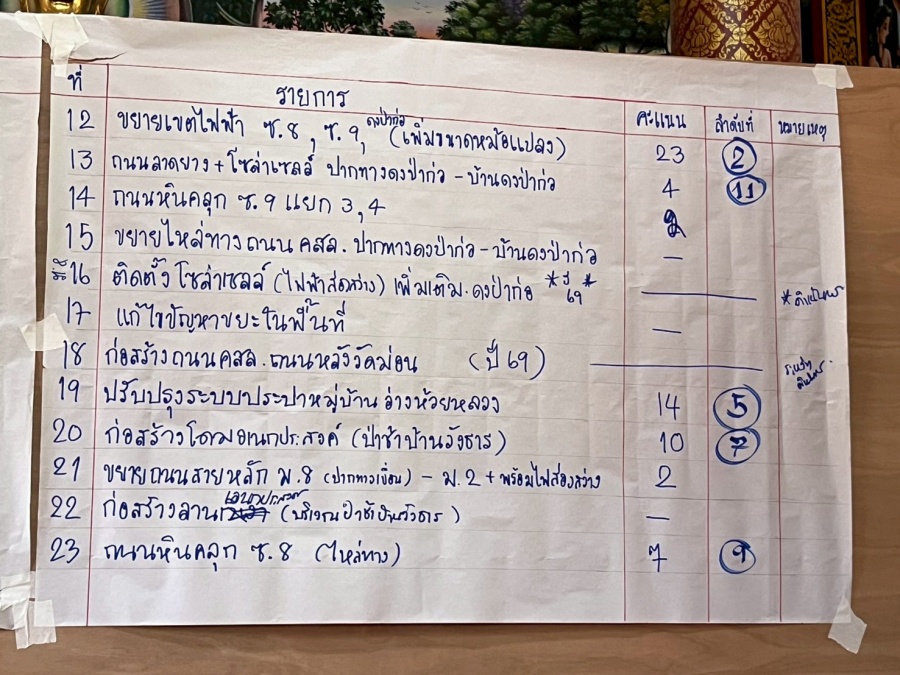 ที่ รายการ คะแนน ลำดับที่ หมายเหตุ
12 ขยายเขตไฟฟ้า ซ.8 , ซ.9 ดงป่าก่อ (เพิ่มขนาดหม้อแปลง) 23 2
13 ถนนลาดยาง + โซล่าเซลล์ ปากทางดงป่าก่อ - บ้านดงป่าก่อ 4 11
14 ถนนหินคลุก ซ.9 แยก 3,4
15 ขยายไหล่ทางถนน คสล. ปากทางดงป่าก่อ - บ้านดงป่าก่อ —
16 ติดตั้งโซล่าเซลล์ (ไฟฟ้าส่องสว่าง) เพิ่มเติม.ดงป่าก่อ * ปี 69 * —
17 แก้ไขปัญหาขยะในพื้นที่ —
18 ก่อสร้างถนนคสล.ถนนหลังวัดม่อน (ปี 69) —
19 ปรับปรุงระบบประปาหมู่บ้าน อ่างห้วยหลวง 14 5
20 ก่อสร้างโดมอเนกประสงค์ (ป่าช้าบ้านวังธาร) 10 7
21 ขยายถนนสายหลัก ม.8 (ปากทางเขื่อน) - ม.2 + พร้อมไฟส่องสว่าง 2
22 ก่อสร้างลานเอนกประสงค์ (บริเวณป่าช้าบ้านวังธาร) —
23 ถนนหินคลุก ซ.8 (ไหล่ทาง) 7 9